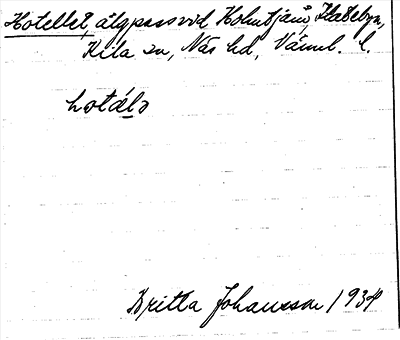 Hotellet, älgpass vid Holmtjärn, Klasebyn,
Kila sn, Näs hd, Värml. l.
hotälə
Britta Johansson 1934